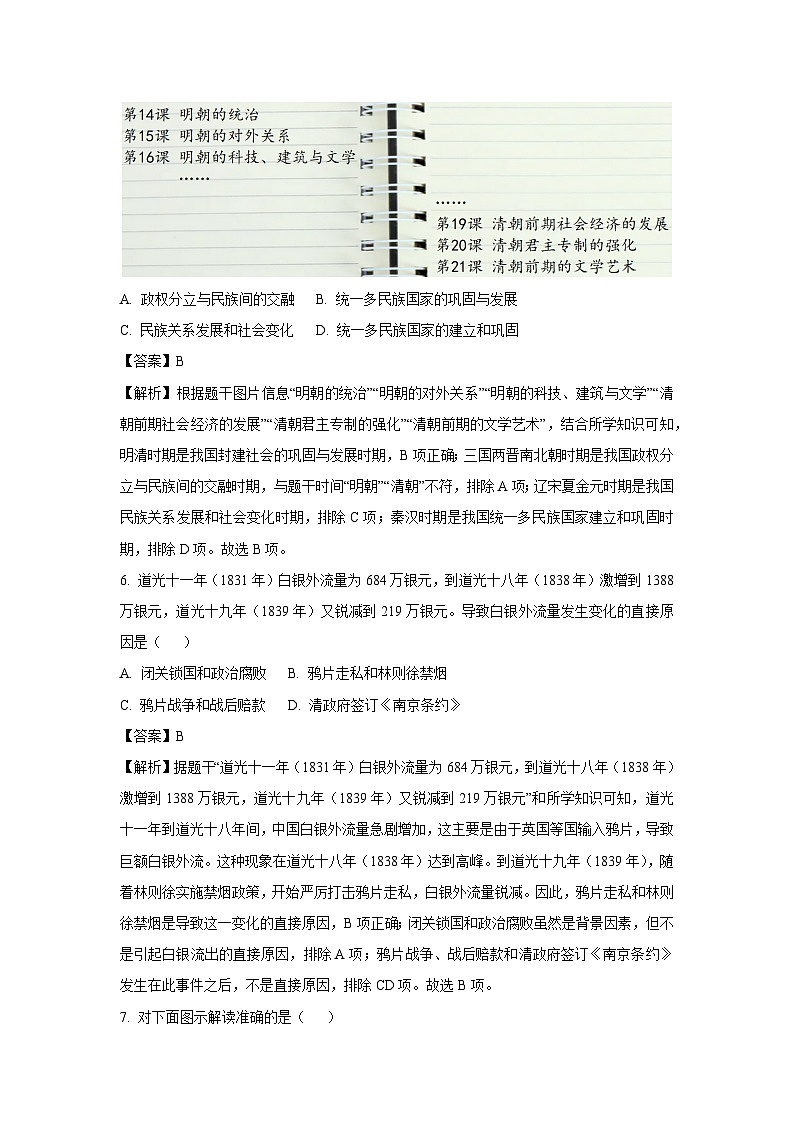 第14课 明朝的统治
第15课 明朝的对外关系
第16课 明朝的科技、建筑与文学
……
……
第19课 清朝前期社会经济的发展
第20课 清朝君主专制的强化
第21课 清朝前期的文学艺术
A. 政权分立与民族间的交融 B. 统一多民族国家的巩固与发展
C. 民族关系发展和社会变化 D. 统一多民族国家的建立和巩固
【答案】B
【解析】根据题干图片信息“明朝的统治”“明朝的对外关系”“明朝的科技、建筑与文学”“清
朝前期社会经济的发展”“清朝君主专制的强化”“清朝前期的文学艺术”，结合所学知识可知，
明清时期是我国封建社会的巩固与发展时期，B 项正确；三国两晋南北朝时期是我国政权分
立与民族间的交融时期，与题干时间“明朝”“清朝”不符，排除 A 项；辽宋夏金元时期是我国
民族关系发展和社会变化时期，排除 C 项；秦汉时期是我国统一多民族国家建立和巩固时
期，排除 D 项。故选 B 项。
6. 道光十一年（1831 年）白银外流量为 684 万银元，到道光十八年（1838 年）激增到 1388
万银元，道光十九年（1839 年）又锐减到 219 万银元。导致白银外流量发生变化的直接原
因是（ ）
A. 闭关锁国和政治腐败 B. 鸦片走私和林则徐禁烟
C. 鸦片战争和战后赔款 D. 清政府签订《南京条约》
【答案】B
【解析】据题干“道光十一年（1831 年）白银外流量为 684 万银元，到道光十八年（1838 年）
激增到 1388 万银元，道光十九年（1839 年）又锐减到 219 万银元”和所学知识可知，道光
十一年到道光十八年间，中国白银外流量急剧增加，这主要是由于英国等国输入鸦片，导致
巨额白银外流。这种现象在道光十八年（1838 年）达到高峰。到道光十九年（1839 年），随
着林则徐实施禁烟政策，开始严厉打击鸦片走私，白银外流量锐减。因此，鸦片走私和林则
徐禁烟是导致这一变化的直接原因，B 项正确；闭关锁国和政治腐败虽然是背景因素，但不
是引起白银流出的直接原因，排除 A 项；鸦片战争、战后赔款和清政府签订《南京条约》
发生在此事件之后，不是直接原因，排除 CD 项。故选 B 项。
7. 对下面图示解读准确的是（ ）